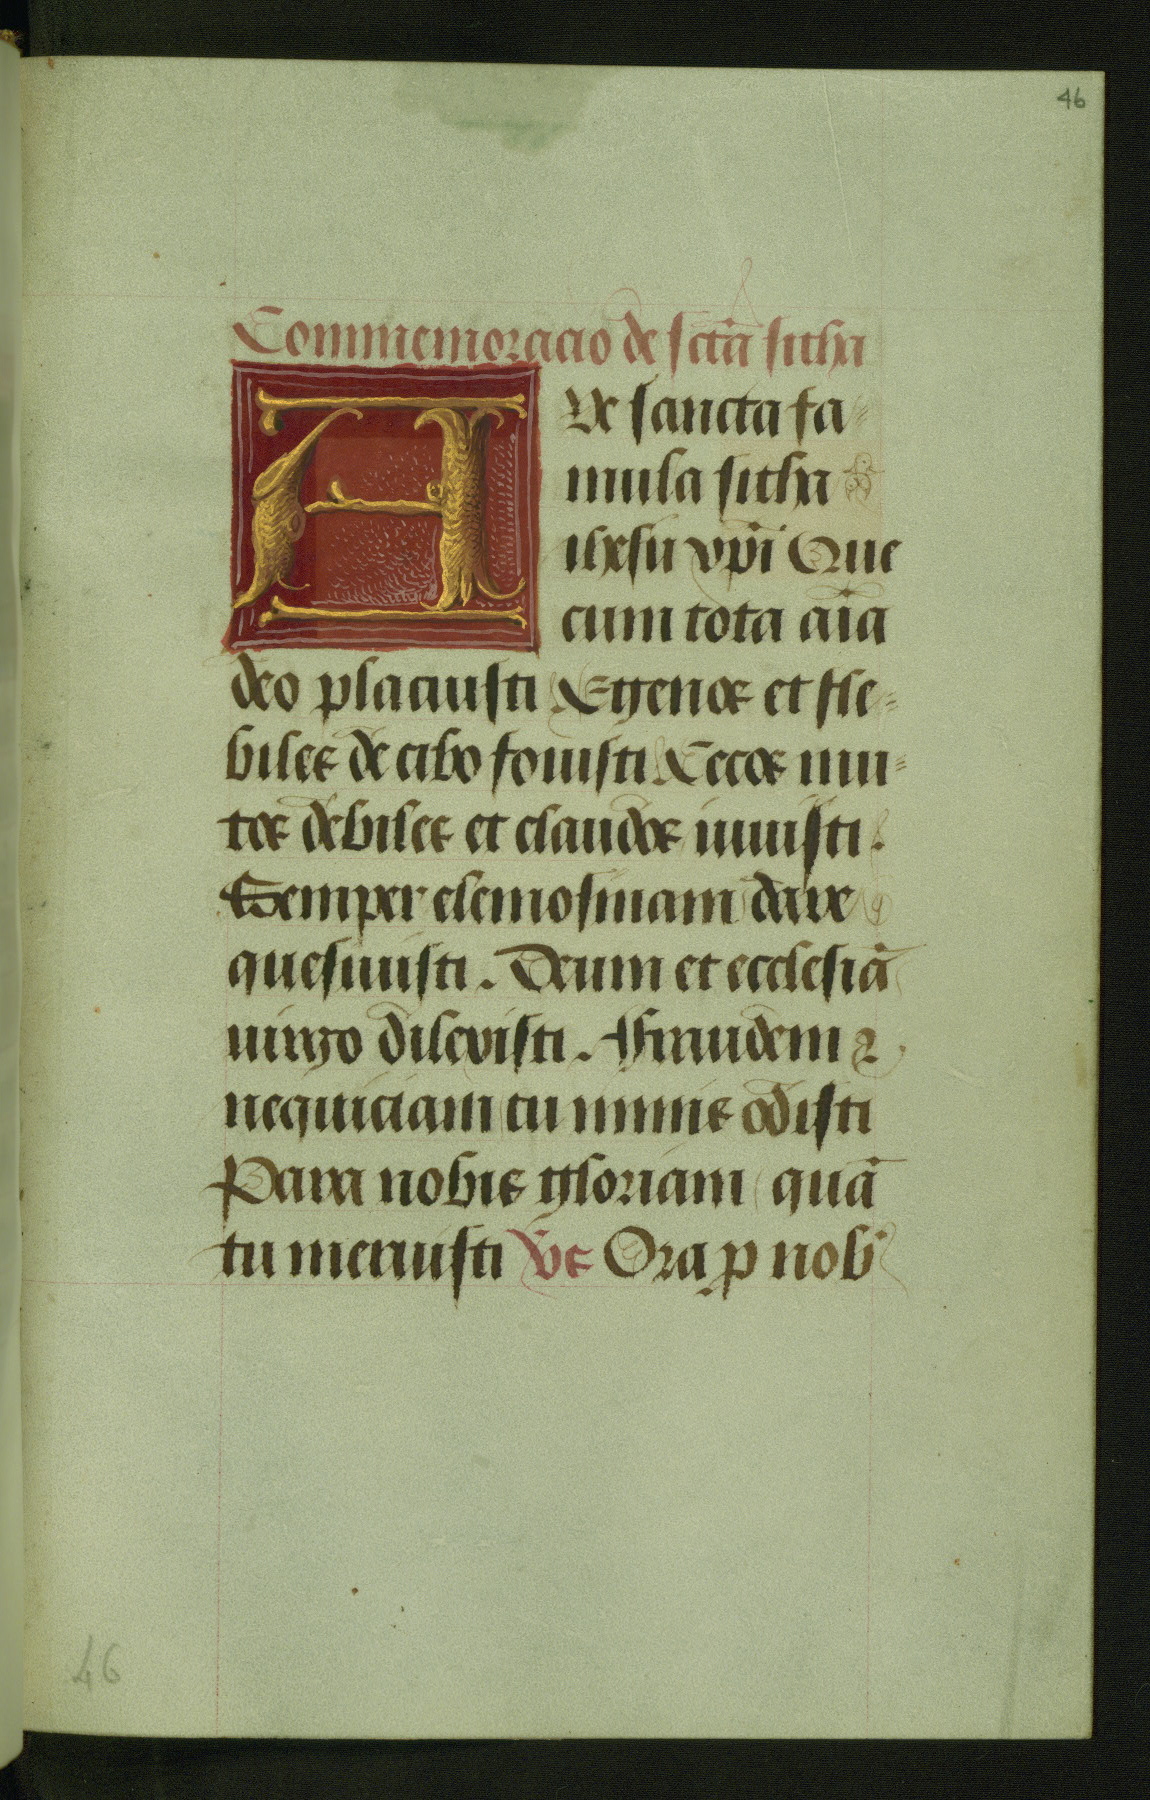 46
Commemoracio de sctā sitha
Aue sancta fa=
mula sitha
ihesu xp̄i Que
cum tota aīa
deo placuisti Egenos et fle=
biles de cibo fouisti Cecos mu=
tos debiles et claudos iuuisti.
Semper elemosinam dare
quesiuisti. Deum et ecclesiā
uirgo dilexisti. Fraudem ⁊
nequiciam tu nimis odisti
Para nobis gloriam quā
tu meruisti v̄s Ora ꝓ nob
46